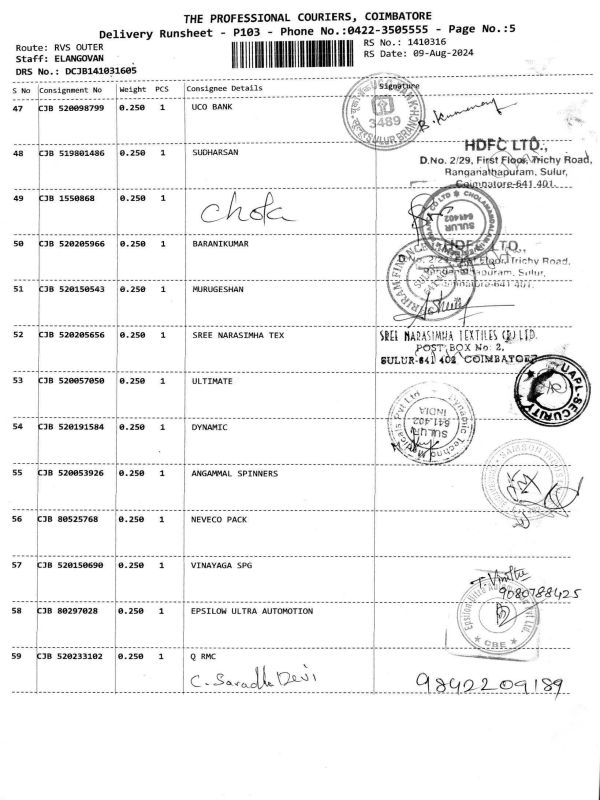 THE PROFESSIONAL COURIERS, COIMBATORE
Delivery Runsheet - P103 - Phone No.:0422-3505555 - Page No.:5
Route: RVS OUTER
RS No.: 1410316
Staff: ELANGOVAN
RS Date: 09-Aug-2024
DRS No.: DCJB141031605
S No Consignment No Weight PCS Consignee Details Signature
47 CJB 520098799 0.250 1 UCO BANK
3489
SULUR BRANCH
48 CJB 519801486 0.250 1 SUDHARSAN
HDFC LTD.,
D.No. 2/29, First Floor, Trichy Road,
Ranganathapuram, Sulur,
Coimbatore-641 401.
49 CJB 1550868 0.250 1
Chola
SULUR
641402
50 CJB 520205966 0.250 1 BARANIKUMAR
HDFC LTD.,
D.No. 2/29, First Floor, Trichy Road,
Ranganathapuram, Sulur,
Coimbatore-641 401.
51 CJB 520150543 0.250 1 MURUGESHAN
52 CJB 520205656 0.250 1 SREE NARASIMHA TEX
SREE NARASIMHA TEXTILES (P) LTD.
POST BOX No: 2,
SULUR-641 402 COIMBATORE
53 CJB 520057050 0.250 1 ULTIMATE
UAPL-SECURITY
54 CJB 520191584 0.250 1 DYNAMIC
SULUR
641.402
INDIA
55 CJB 520053926 0.250 1 ANGAMMAL SPINNERS
56 CJB 80525768 0.250 1 NEVECO PACK
57 CJB 520150690 0.250 1 VINAYAGA SPG
9080788425
58 CJB 80297028 0.250 1 EPSILOW ULTRA AUTOMOTION
CBE
59 CJB 520233102 0.250 1 Q RMC
C. Saradha Devi
9842209189